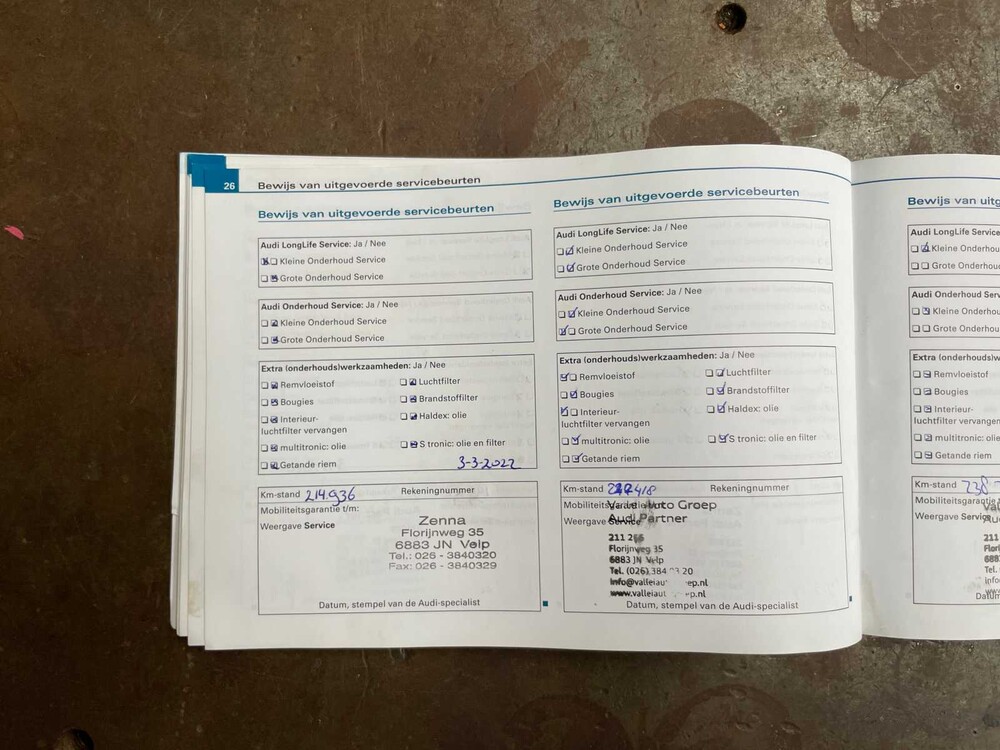 26 Bewijs van uitgevoerde servicebeurten
Bewijs van uitgevoerde servicebeurten
Audi LongLife Service: Ja / Nee
Kleine Onderhoud Service
Grote Onderhoud Service
Audi Onderhoud Service: Ja / Nee
Kleine Onderhoud Service
Grote Onderhoud Service
Extra (onderhouds)werkzaamheden: Ja / Nee
Remvloeistof Luchtfilter
Bougies Brandstoffilter
Interieur- Haldex: olie
luchtfilter vervangen
multitronic: olie S tronic: olie en filter
Getande riem 3-3-2022
Km-stand 214.936 Rekeningnummer
Mobiliteitsgarantie t/m:
Weergave Service
Zenna
Florijnweg 35
6883 JN Velp
Tel.: 026 - 3840320
Fax: 026 - 3840329
Datum, stempel van de Audi-specialist
Bewijs van uitgevoerde servicebeurten
Audi LongLife Service: Ja / Nee
Kleine Onderhoud Service
Grote Onderhoud Service
Audi Onderhoud Service: Ja / Nee
Kleine Onderhoud Service
Grote Onderhoud Service
Extra (onderhouds)werkzaamheden: Ja / Nee
Remvloeistof Luchtfilter
Bougies Brandstoffilter
Interieur- Haldex: olie
luchtfilter vervangen
multitronic: olie S tronic: olie en filter
Getande riem
Km-stand Rekeningnummer
Auto Groep
Weergave Service
Audi Partner
Florijnweg 35
6883 JN Velp
Tel. (026) 384 20
Datum, stempel van de Audi-specialist
Bewijs van
Audi LongLife Service
Kleine Onderhoud
Grote Onderhoud
Audi Onderhoud
Kleine Onderhoud
Grote Onderhoud
Extra
Remvloeistof
Bougies
Interieur-
luchtfilter vervangen
multitronic: olie
Getande riem
Km-stand
Mobiliteitsgarantie
Weergave